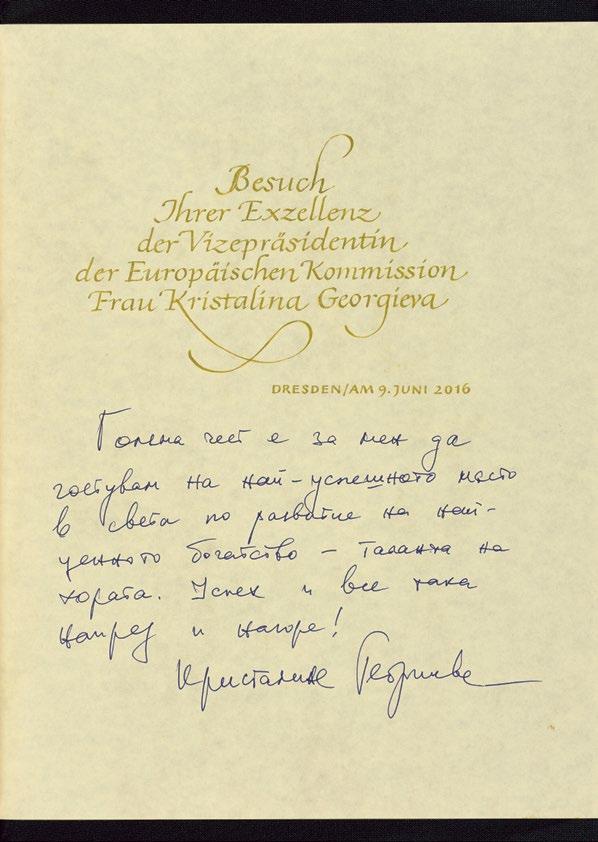 Besuch
Ihrer Exzellenz
der Vizepräsidentin
der Europäischen Kommission
Frau Kristalina Georgieva
DRESDEN/AM 9. JUNI 2016
Голяма чест е за мен да
гостувам на най-успешното място
в света по развитие на най-
ценното богатство – таланта на
хората. Успех и все така
напред и нагоре!
Кристалина Георгиева